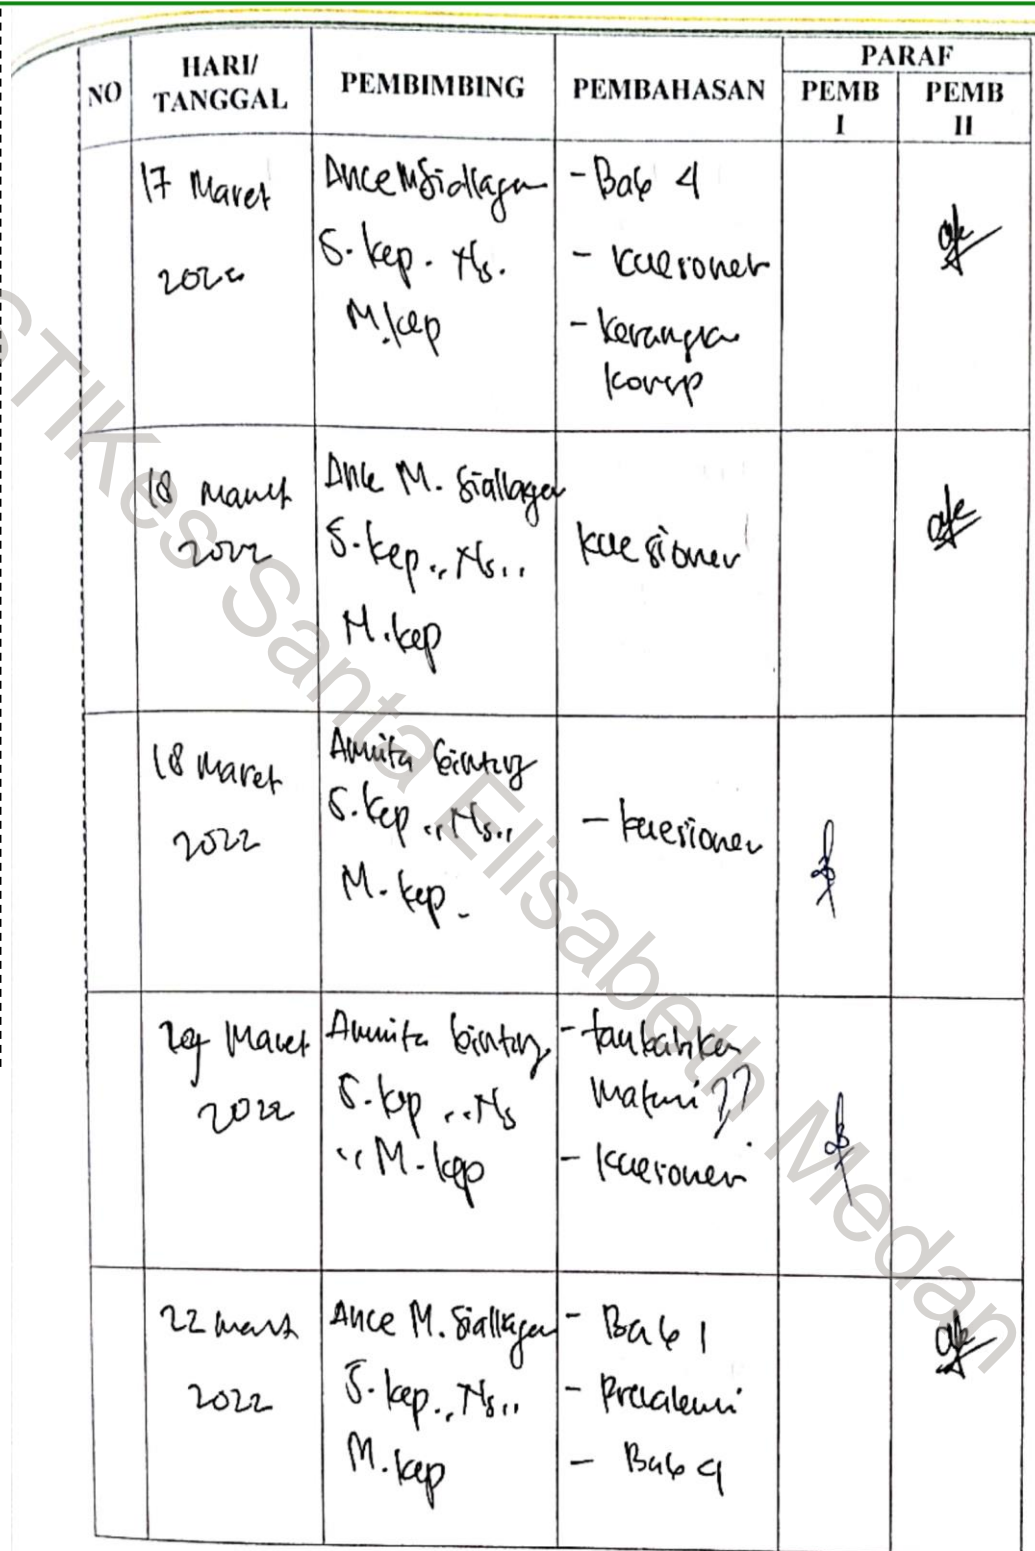 NO HARI/ TANGGAL PEMBIMBING PEMBAHASAN PARAF
PEMB I PEMB II
17 Maret
2022
Ance M Siallagan
S.kep. Ns.
M.kep
- Bab 4
- kuesioner
- kerangka
konsep
18 Maret
2022
Ance M. Siallagan
S.kep., Ns.,
M.kep
kuesioner
18 Maret
2022
Amnita Ginting
S.kep., Ns.,
M.kep.
- kuesioner
Maret
2022
Amnita Ginting
S.kep., Ns
., M.kep
- tambahkan
??
- kuesioner
22 Maret
2022
Ance M. Siallagan
S.kep., Ns.,
M.kep
- Bab 1
- Prevalensi
- Bab 4
STIKes Santa Elisabeth Medan